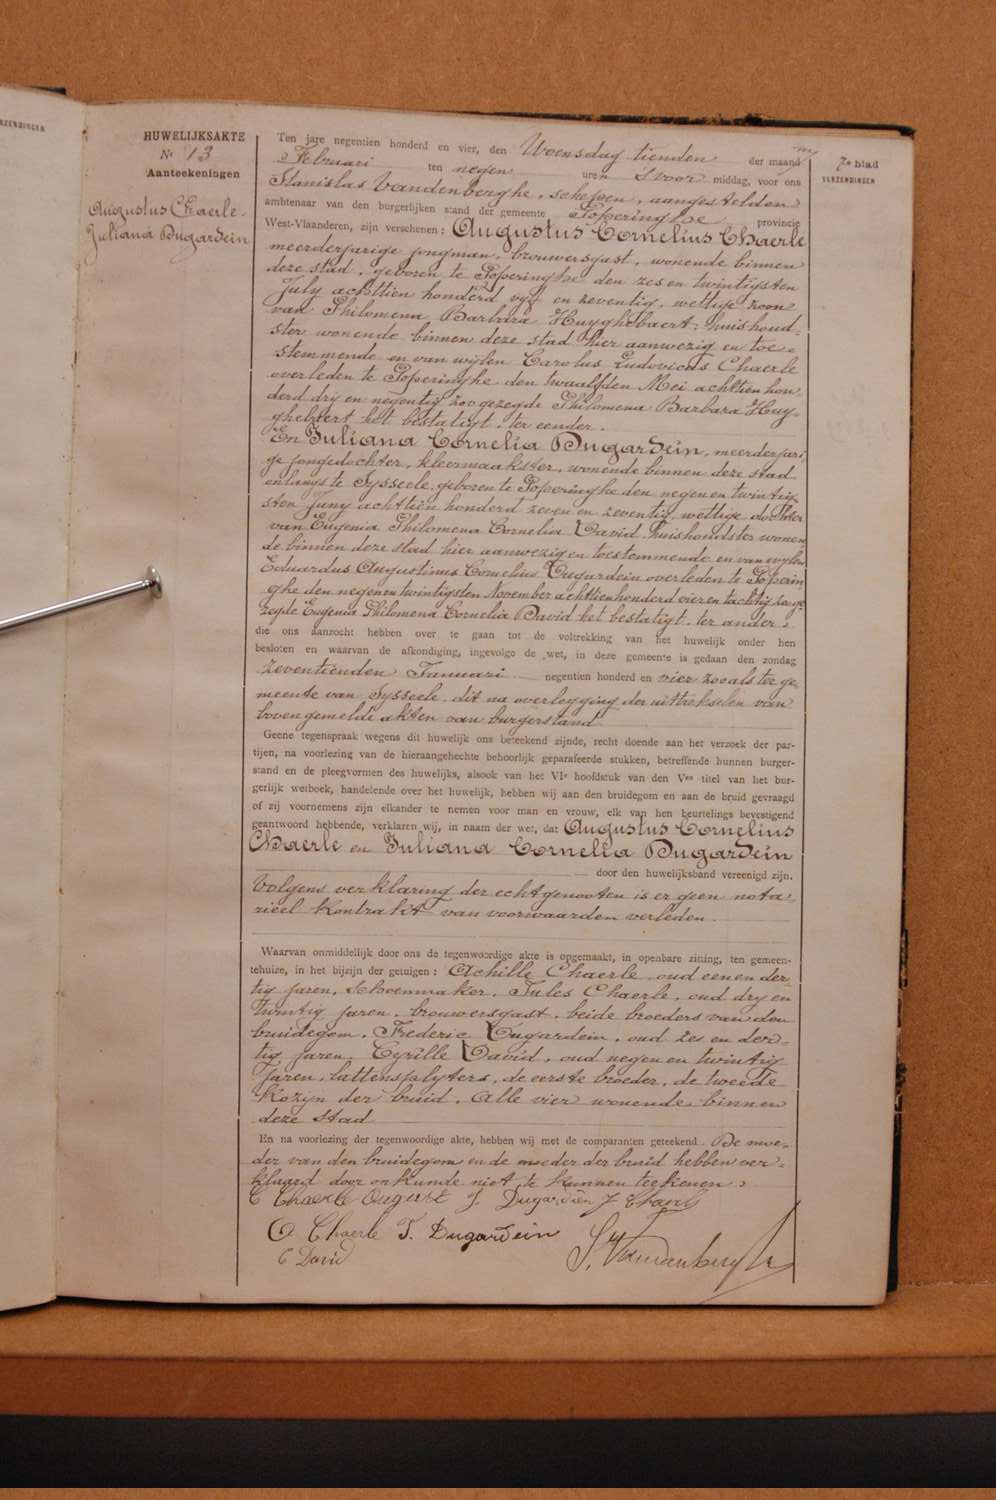 HUWELIJKSAKTE
Nr 13
Aanteekeningen
Augustus Chaerle.
Juliana Dugardein
7e blad
VERZENDINGEN
Ten jare negentien honderd en vier, den Woensdag tienden der maand
Februari ten negen uren 's voor middag, voor ons
Stanislas Vandenberghe, schepen, aangestelden
ambtenaar van den burgerlijken stand der gemeente Poperinghe provincie
West-Vlaanderen, zijn verschenen: Augustus Cornelius Chaerle
meerderjarige jongman, brouwersgast, wonende binnen
deze stad, geboren te Poperinghe den zes en twintigsten
July achttien honderd vyf en zeventig, wettige zoon
van Philomena Barbara Huyghebaert, huishoud-
ster wonende binnen deze stad hier aanwezig en toe-
stemmende en van wijlen Carolus Ludovicus Chaerle
overleden te Poperinghe den twaalfden Mei achttien hon
derd dry en negentig zoo gezegde Philomena Barbara Huy-
ghebaert het bestatigt. ter eender.
En Juliana Cornelia Dugardein, meerderjari-
ge jongedochter, kleermaakster, wonende binnen deze stad
onlangs te Sysseele, geboren te Poperinghe den negen en twintig-
sten Juny achttien honderd zeven en zeventig wettige dochter
van Eugenia Philomena Cornelia David huishoudster wonen
de binnen deze stad hier aanwezig en toestemmende en van wylen
Eduardus Augustinus Cornelius Dugardein overleden te Poperin
ghe den negenentwintigsten November achttienhonderd vierentachtig zooge
zegde Eugenia Philomena Cornelia David het bestatigt. ter ander,
die ons aanzocht hebben over te gaan tot de voltrekking van het huwelijk onder hen
besloten en waarvan de afkondiging, ingevolge de wet, in deze gemeente is gedaan den zondag
zeventienden Januari negentien honderd en vier zooals ter ge
meente van Sysseele dit na overlegging der uittrekselen van
bovengemelde akten van burgerstand
Geene tegenspraak wegens dit huwelijk ons beteekend zijnde, recht doende aan het verzoek der par-
tijen, na voorlezing van de hieraangehechte behoorlijk geparafeerde stukken, betreffende hunnen burger-
stand en de pleegvormen des huwelijks, alsook van het VIe hoofdstuk van den Ven titel van het bur-
gerlijk wetboek, handelende over het huwelijk, hebben wij aan den bruidegom en aan de bruid gevraagd
of zij voornemens zijn elkander te nemen voor man en vrouw, elk van hen beurtelings bevestigend
geantwoord hebbende, verklaren wij, in naam der wet, dat Augustus Cornelius
Chaerle en Juliana Cornelia Dugardein
door den huwelijksband vereenigd zijn.
Volgens verklaring der echtgenooten is er geen nota-
rieel kontrakt van voorwaarden verleden.
Waarvan onmiddellijk door ons de tegenwoordige akte is opgemaakt, in openbare zitting, ten gemeen-
tehuize, in het bijzijn der getuigen: Achille Chaerle oud eenen der-
tig jaren, schoenmaker, Jules Chaerle, oud dry en
twintig jaren, brouwersgast, beide broeders van den
bruidegom, Frederic Dugardein, oud zes en der-
tig jaren, Cyrille David, oud negen en twintig
jaren, lattensplyters, de eerste broeder, de tweede
kozyn der bruid. Alle vier wonende binnen
deze stad
En na voorlezing der tegenwoordige akte, hebben wij met de comparanten geteekend. De moe-
der van den bruidegom en de moeder der bruid hebben ver-
klaard door onkunde niet te kunnen teekenen,
C Chaerle August J. Dugardein J Chaerle
A Chaerle F. Dugardein
C David
S. Vandenberghe